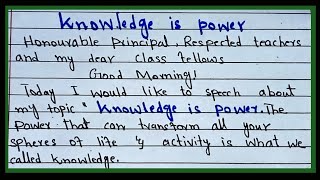 Knowledge is power
Honourable principal, Respected teachers
and my dear class fellows
Good Morning!
Today I would like to speech about
my topic "Knowledge is power. The
power that can transform all your
spheres of life & activity is what we
called knowledge.